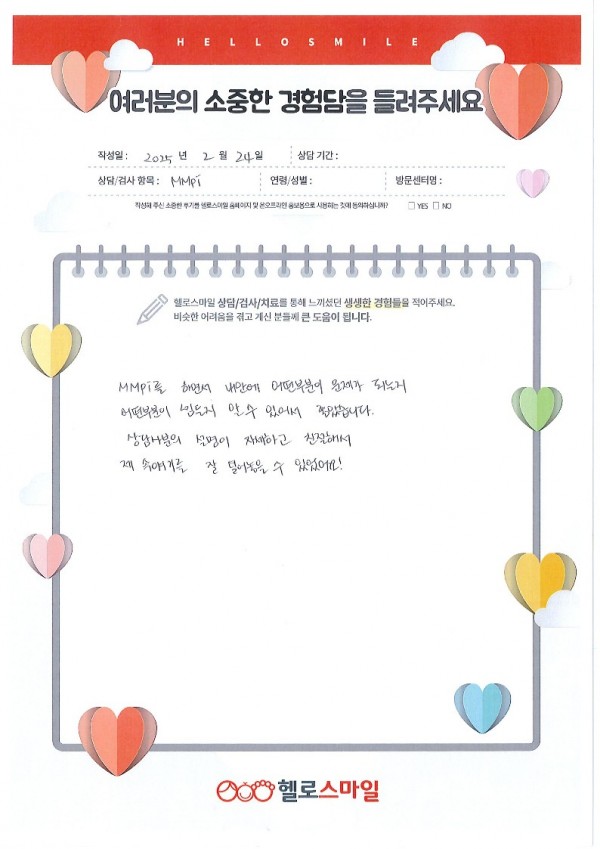 HELLOSMILE
여러분의 소중한 경험담을 들려주세요
작성일 : 2025 년 2 월 24 일 상담 기간 :
상담/검사 항목 : MMPi 연령/성별 : 방문센터명 :
작성해 주신 소중한 후기를 헬로스마일 홈페이지 및 온오프라인 홍보용으로 사용하는 것에 동의하십니까? □ YES □ NO
헬로스마일 상담/검사/치료를 통해 느끼셨던 생생한 경험들을 적어주세요.
비슷한 어려움을 겪고 계신 분들께 큰 도움이 됩니다.
MMPi를 하면서 내안에 어떤부분이 문제가 되는지
어떤부분이 힘든지 알 수 있어서 좋았습니다.
상담사분의 설명이 자세하고 친절해서
제 속얘기를 잘 털어놓을 수 있었어요!
헬로스마일